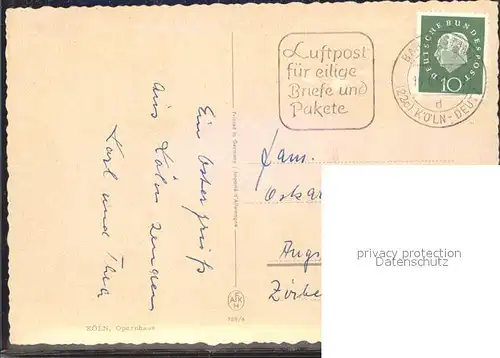 Luftpost
für eilige
Briefe und
Pakete
DEUTSCHE BUNDESPOST
10
d
(22c) KÖLN-DEU
Ein Ostergruß
aus Köln senden
Karl und Thea
Printed in Germany / Imprimé d'Allemagne
Fam.
Oskar
Augs
privacy protection
Datenschutz
AFK
KÖLN, Opernhaus